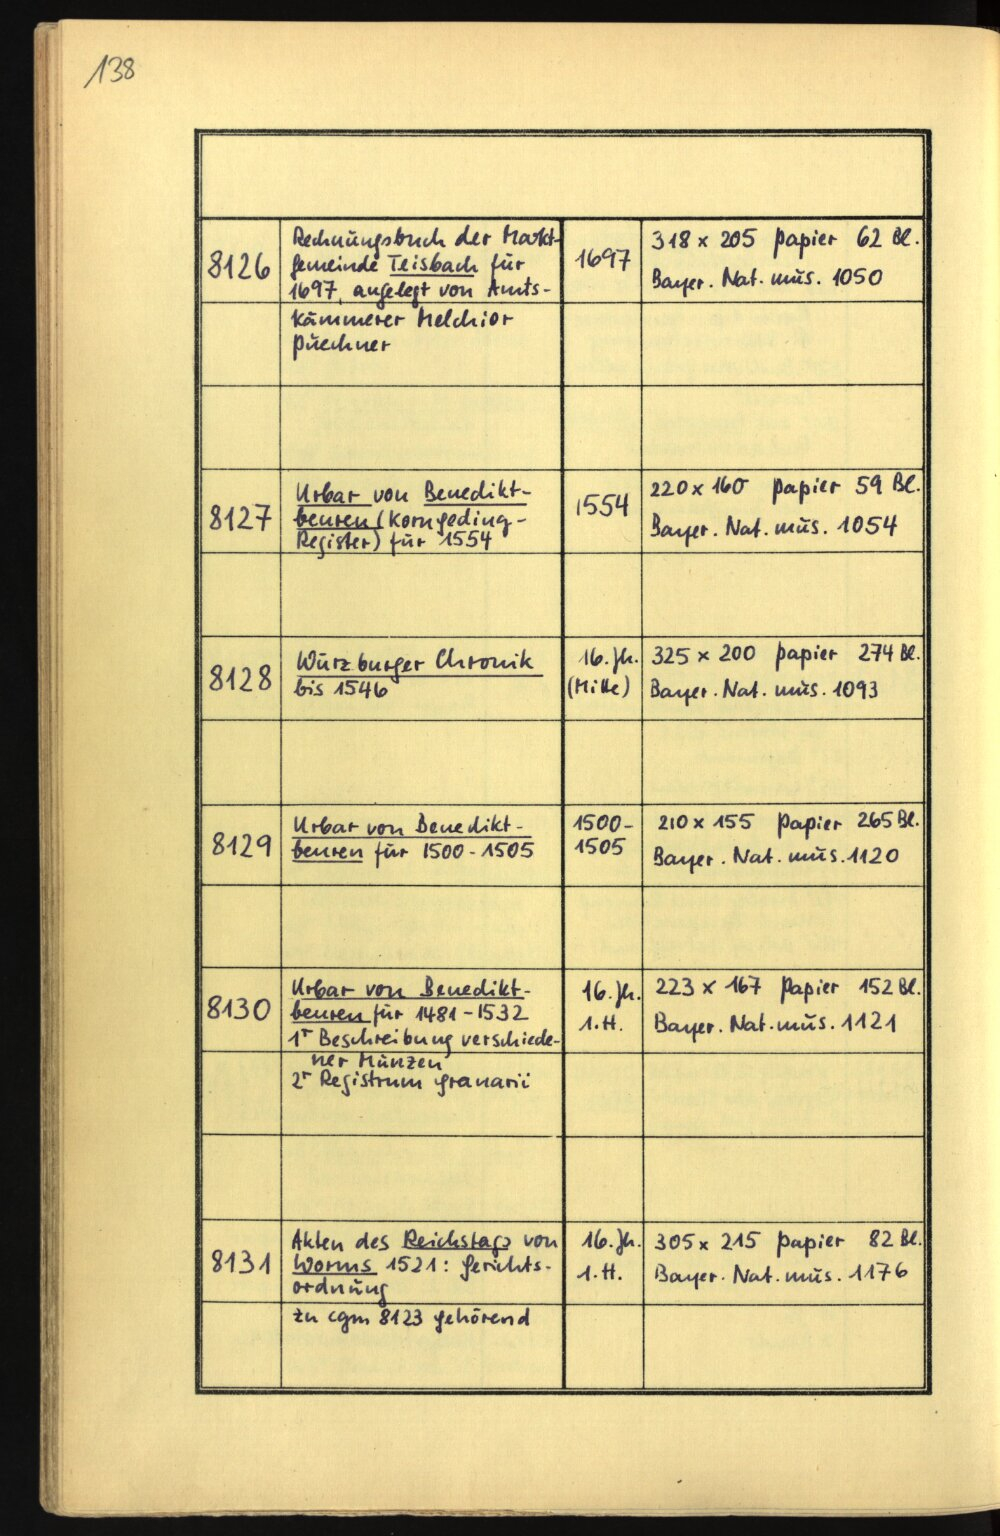 138
8126
Rechnungsbuch der Markt-
gemeinde Teisbach für
1697, angelegt von Amts-
Kämmerer Melchior
Püechner
1697
318 x 205 Papier 62 Bl.
Bayer. Nat. mus. 1050
8127
Urbar von Benedikt-
beuren (Korngeding-
Register) für 1554
1554
220 x 160 Papier 59 Bl.
Bayer. Nat. mus. 1054
8128
Würzburger Chronik
bis 1546
16. Jh.
(Mitte)
325 x 200 Papier 274 Bl.
Bayer. Nat. mus. 1093
8129
Urbar von Benedikt-
beuren für 1500-1505
1500-
1505
210 x 155 Papier 265 Bl.
Bayer. Nat. mus. 1120
8130
Urbar von Benedikt-
beuren für 1481-1532
1r Beschreibung verschiede-
ner Münzen
2r Registrum granarii
16. Jh.
1. H.
223 x 167 Papier 152 Bl.
Bayer. Nat. mus. 1121
8131
Akten des Reichstags von
Worms 1521: Gerichts-
ordnung
zu cgm 8123 gehörend
16. Jh.
1. H.
305 x 215 Papier 82 Bl.
Bayer. Nat. mus. 1176